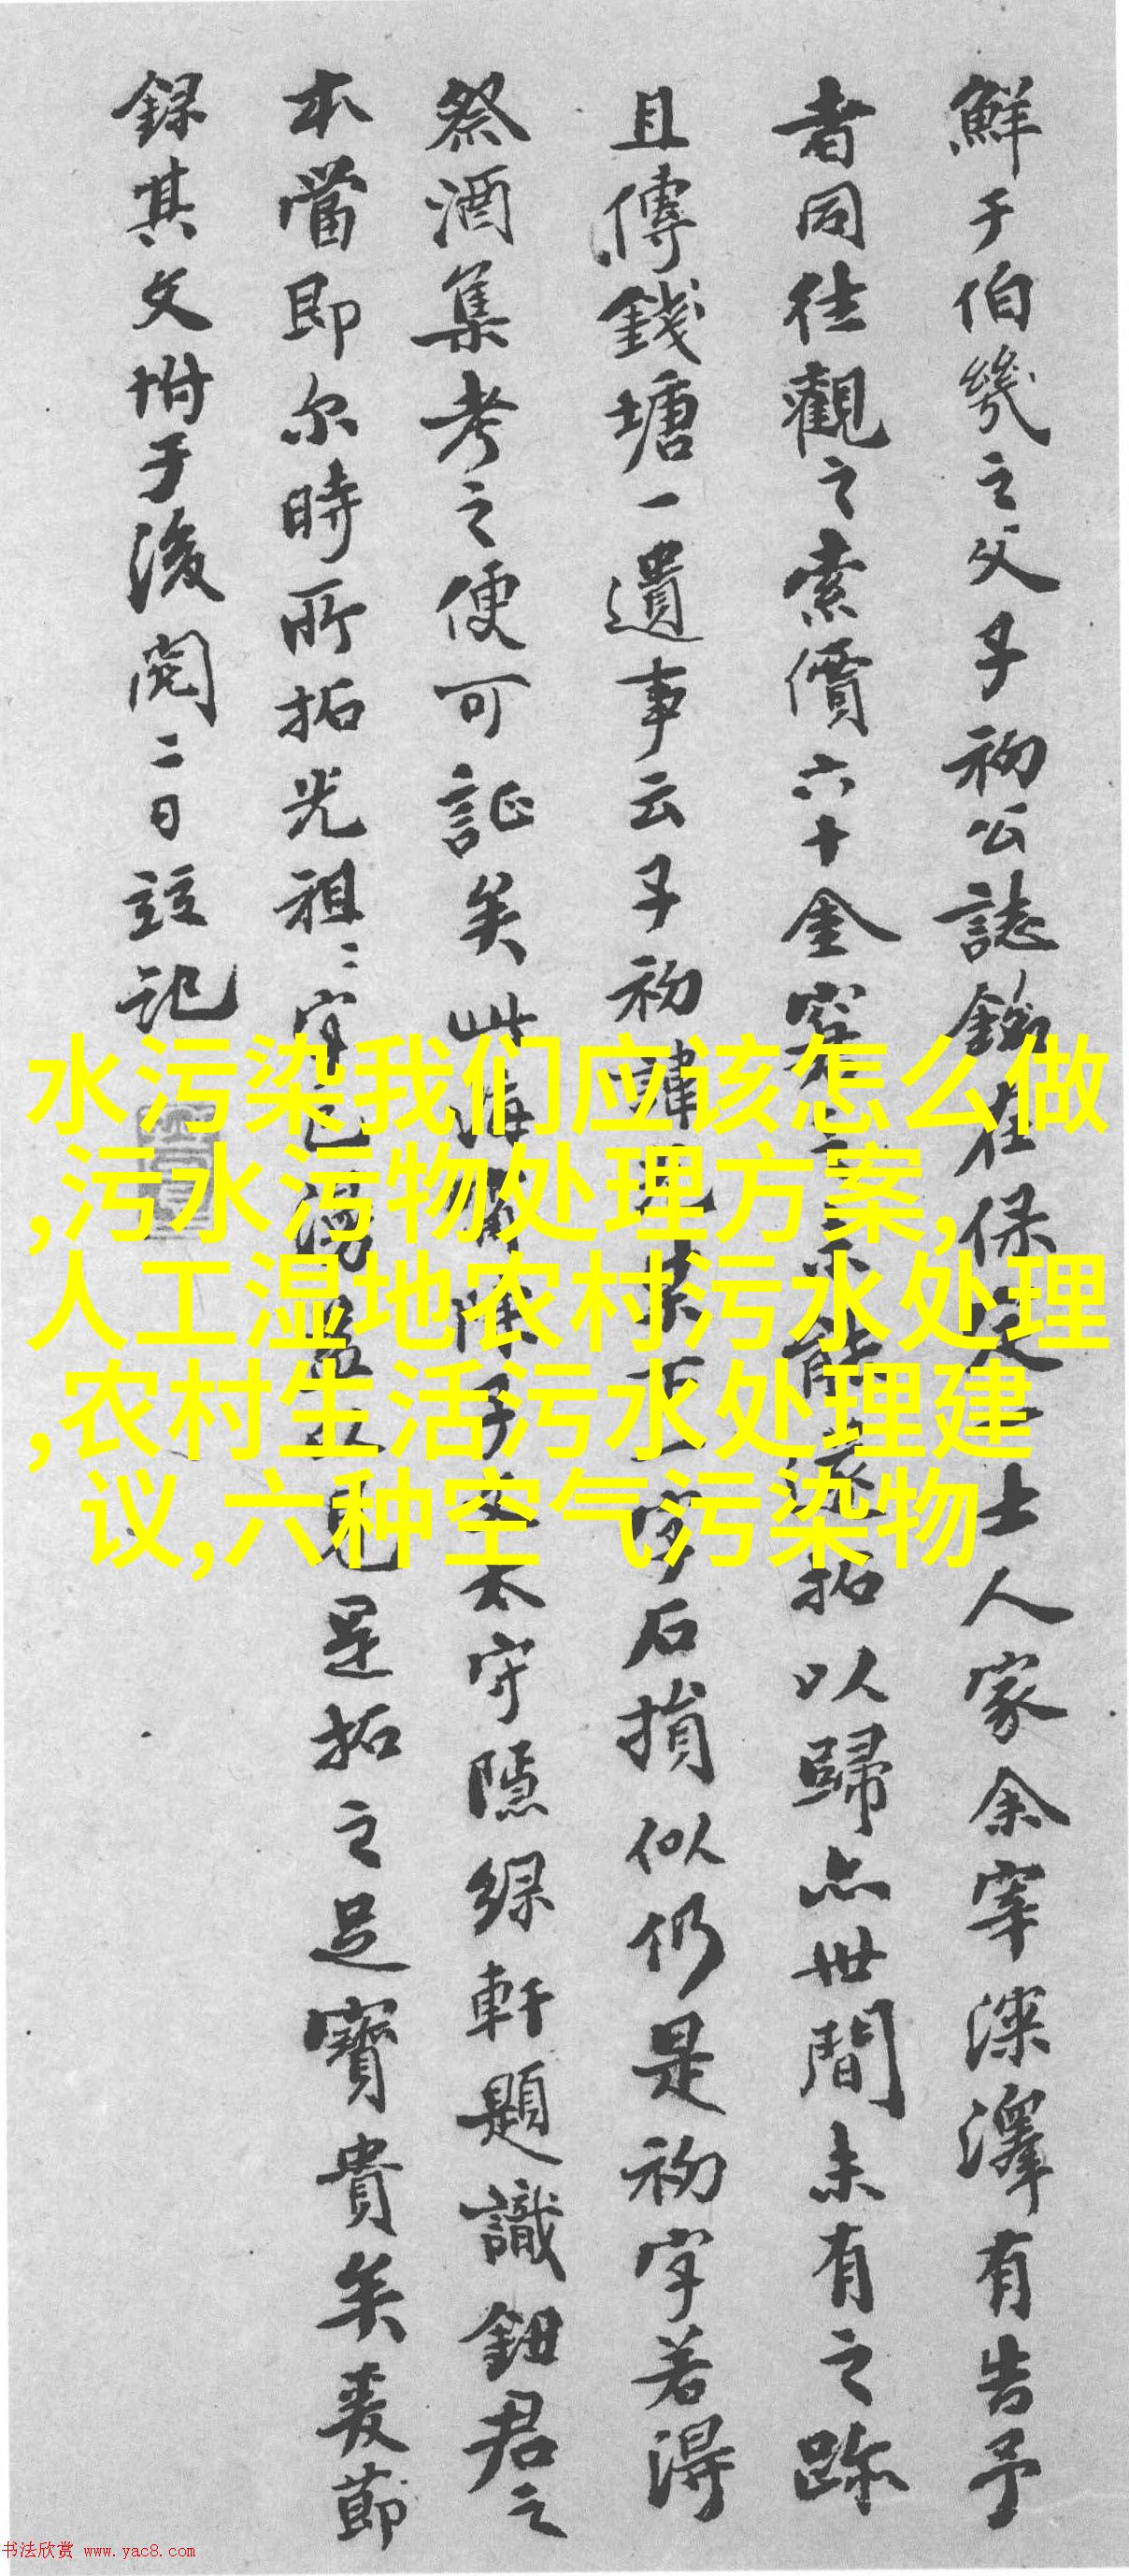 鮮于伯幾之父子初公誌銘在保定一士人家余宰深澤有告予
者同往觀之索價六十金窘不能拓以歸亦世間未有之跡
且傳錢塘一遺事云子初諱下一字石損似仍是初字若得
祭酒集考之便可証矣此海甯陳子文太守隱綠軒題識鈕君之
本當即尔時所拓光祖二字已益見是拓之足寶貴矣爰節
録其文坿于後閱二日記
水污染我们应该怎么做
,污水污物处理方案,
人工湿地农村污水处理
,农村生活污水处理建
议,六种空气污染物
书法欣赏 www.yac8.com